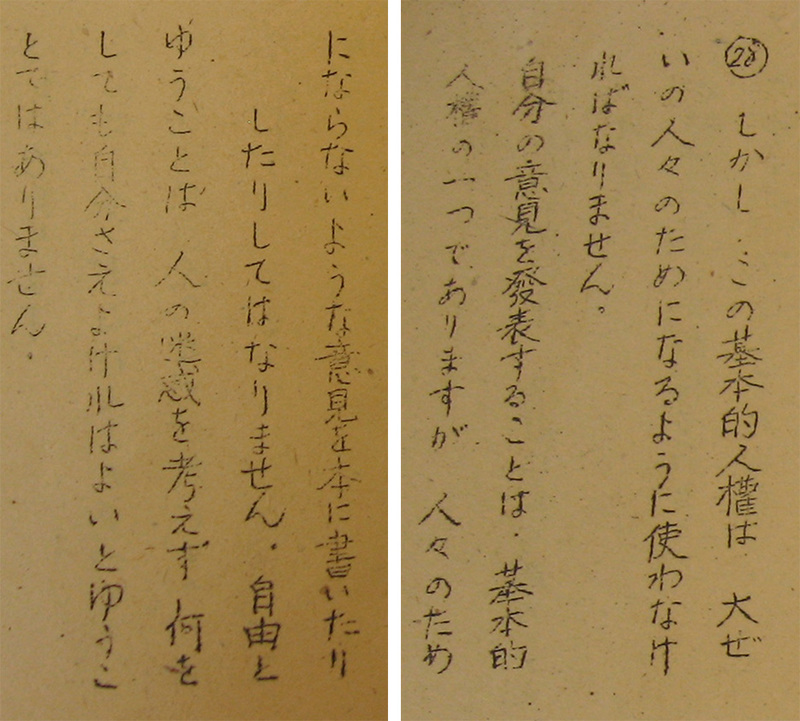 ㉘ しかし、この基本的人權は 大ぜ
いの人々のためになるように使わなけ
ればなりません。
自分の意見を發表することは、基本的
人權の一つでありますが 人々のため
にならないような意見を本に書いたり
したりしてはなりません。自由と
ゆうことは 人の迷惑を考えず 何を
しても自分さえよければよいとゆうこ
とではありません。